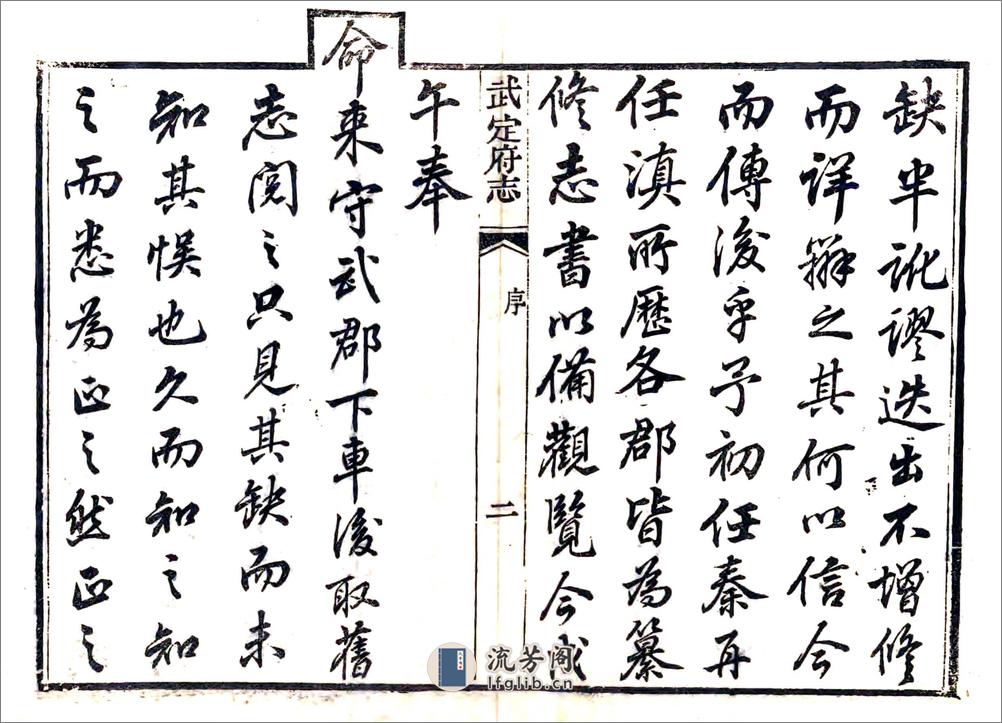 缺半訛謬迭出不增修
而詳辨之其何以信今
而傳後乎予初任秦再
任滇所歷各郡皆為纂
修志書以備觀覽今戊
武定府志
序
二
午奉
命來守武郡下車後取舊
志閱之只見其缺而未
知其悞也久而知之知
之而悉為正之然正之
流芳阁
lfglib.cn